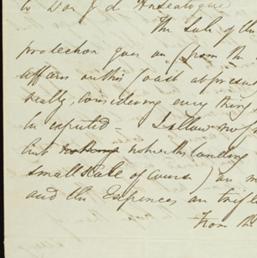 to Don J. d.
The Sale of th
protection goes on from th
affairs on this Coast at presen
really, considering every thing
be expected - I allow no
but notwithstanding
small Scale of course) an
and the Expences are trifl
From th